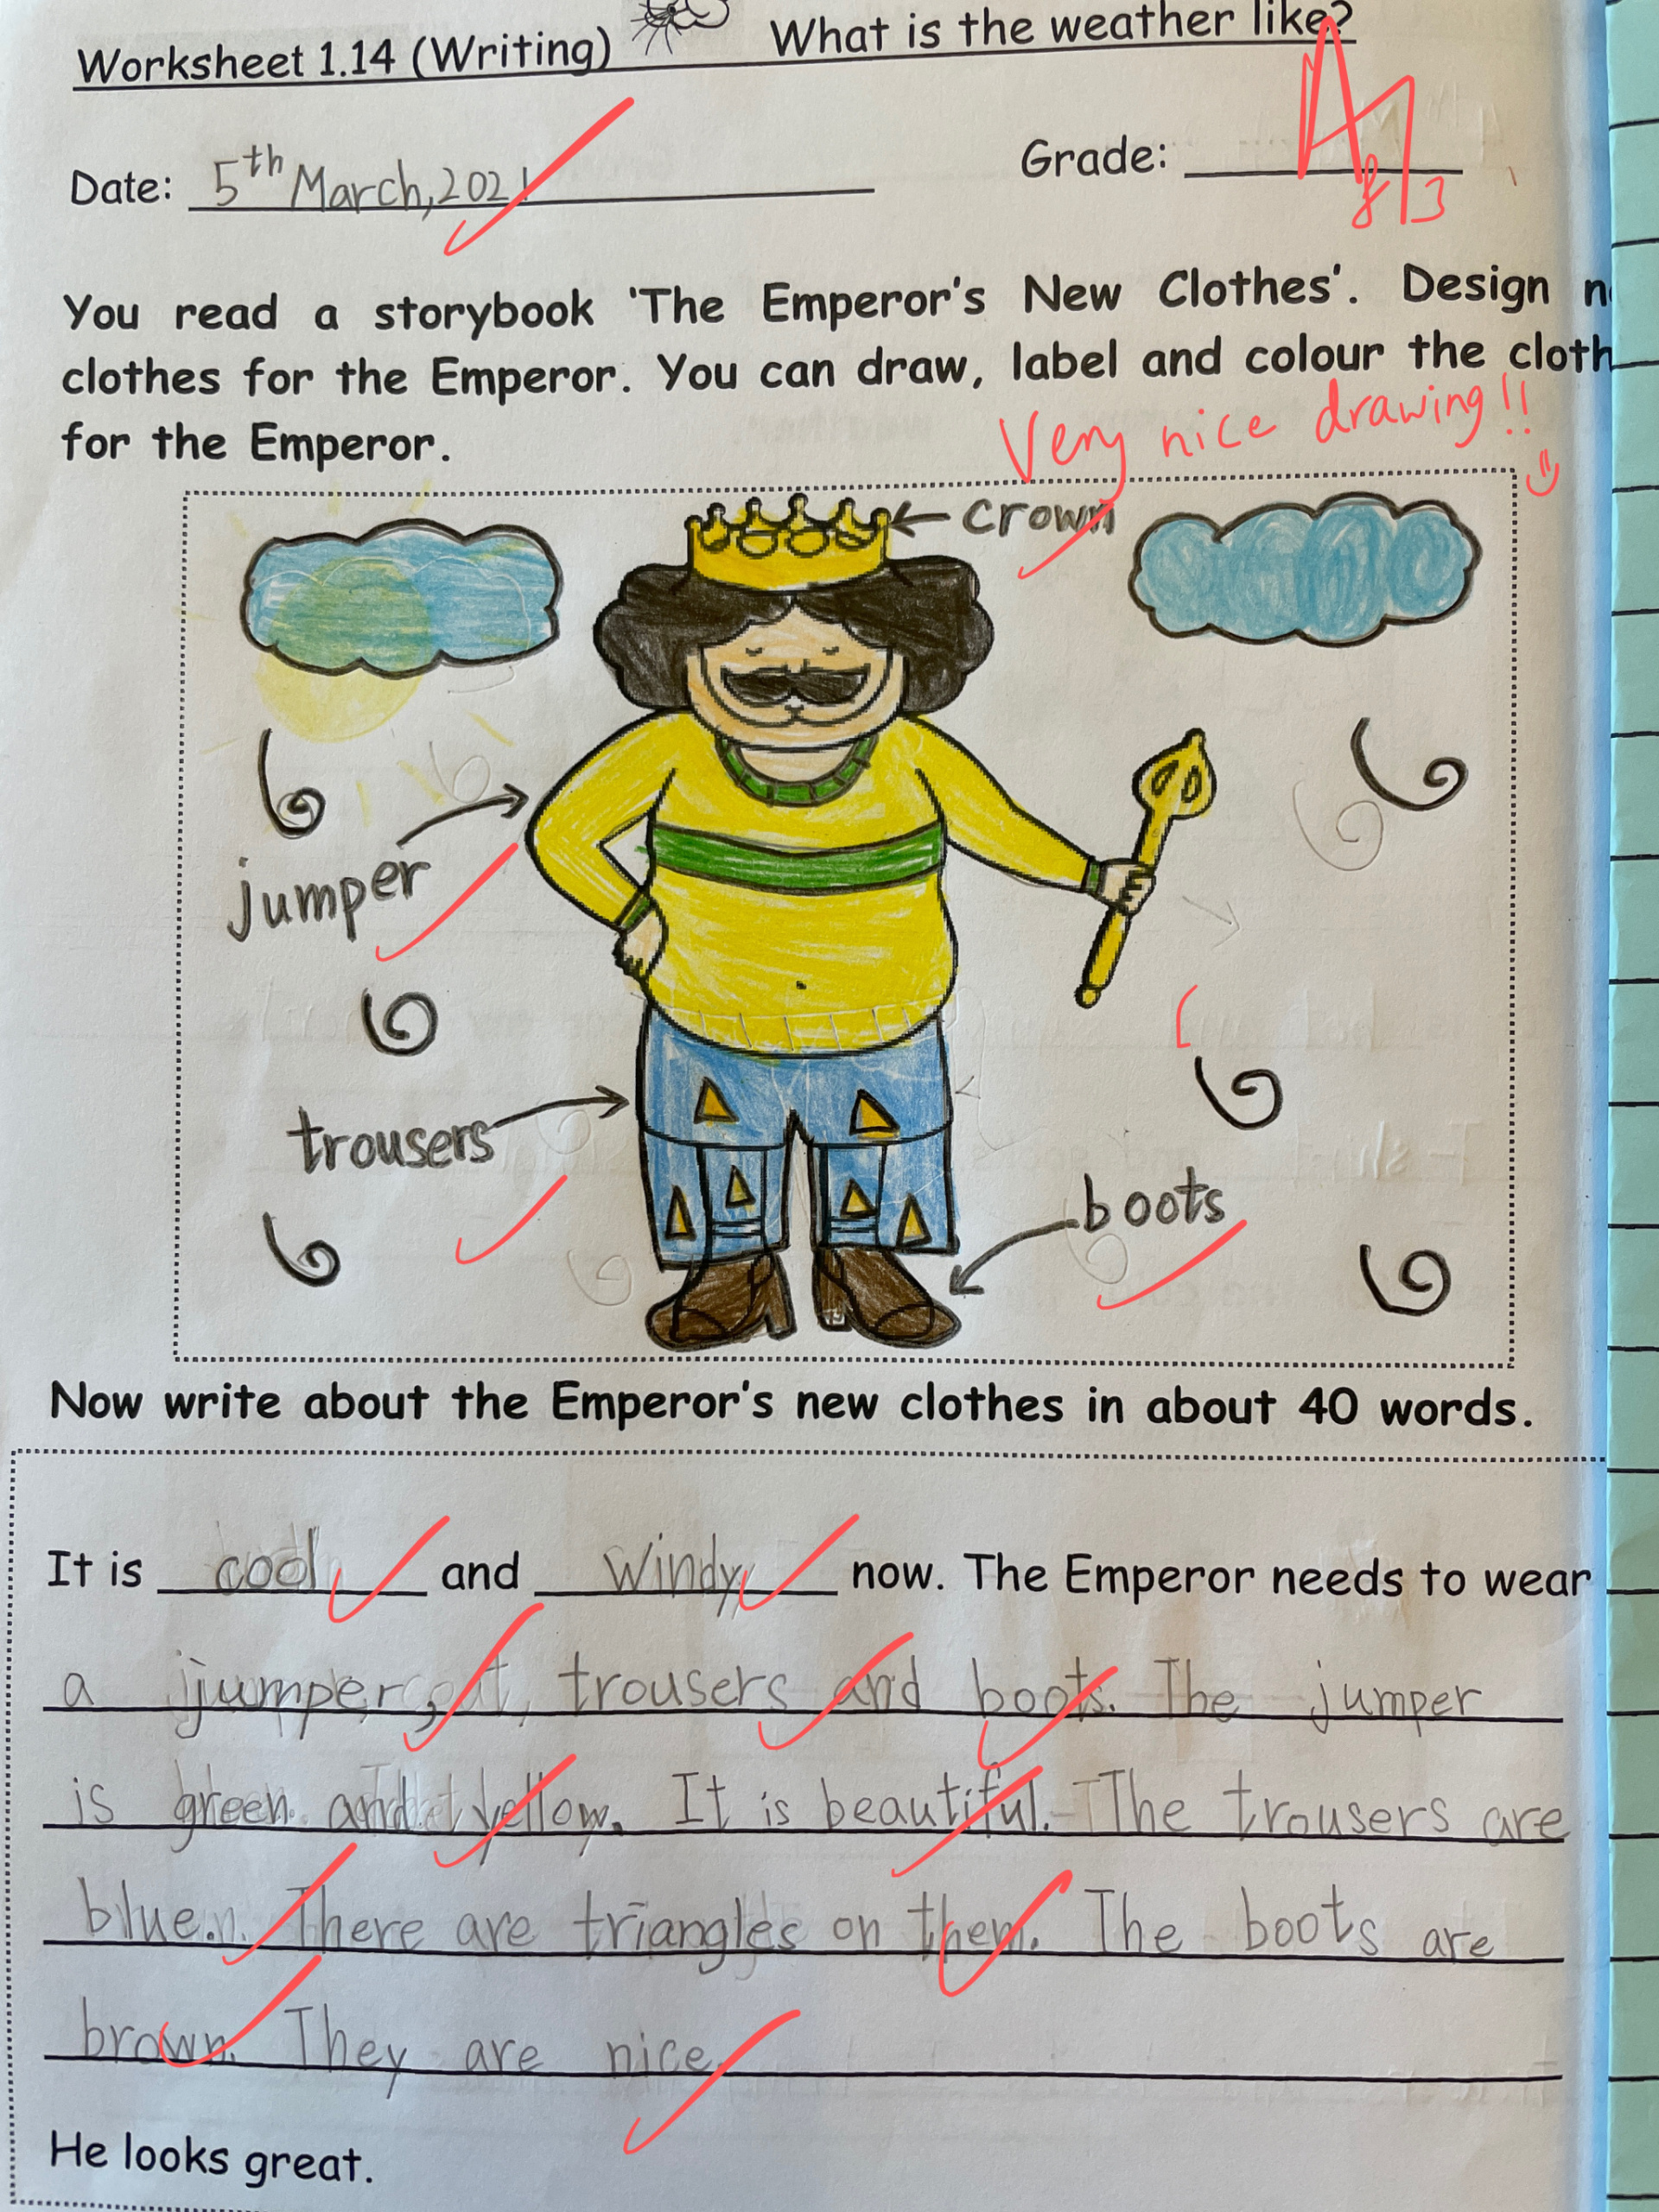 Worksheet 1.14 (Writing) What is the weather like?
Date: 5th March, 2021 Grade: A
8/3
You read a storybook 'The Emperor's New Clothes'. Design
clothes for the Emperor. You can draw, label and colour the cloth
for the Emperor.
Very nice drawing!!
crown
jumper
trousers
boots
Now write about the Emperor's new clothes in about 40 words.
It is cool and windy now. The Emperor needs to wear
a jumper, trousers and boots. The jumper
is green and yellow. It is beautiful. The trousers are
blue. There are triangles on them. The boots are
brown. They are nice.
He looks great.